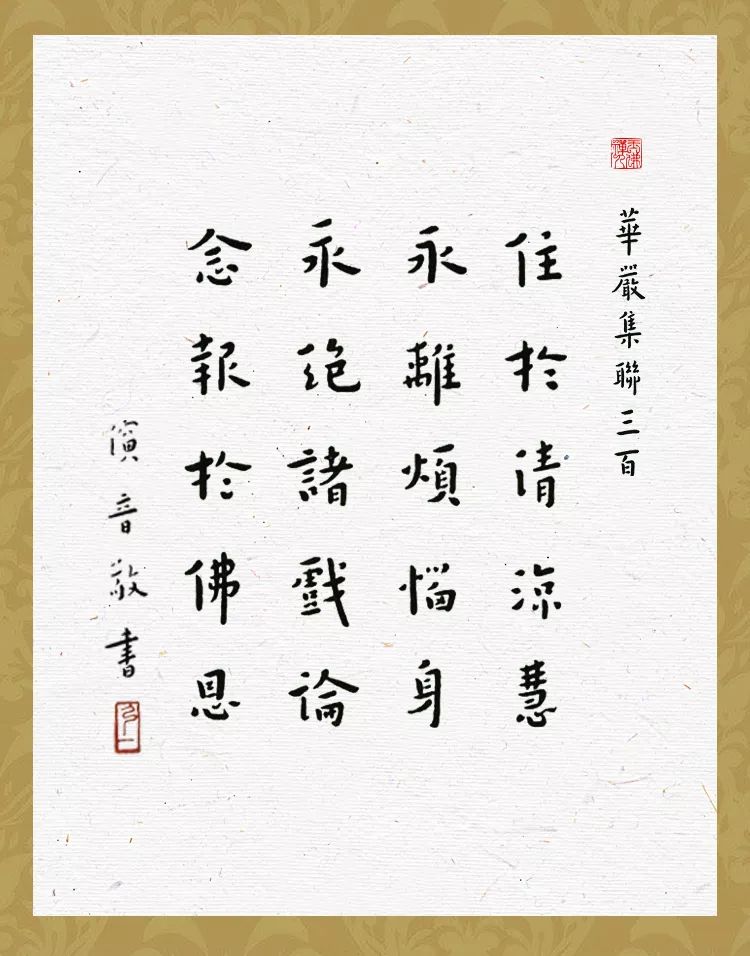 華嚴集聯三百
住於清涼慧
永離煩惱身
永絕諸戲論
念報於佛恩
音敬書
弘一